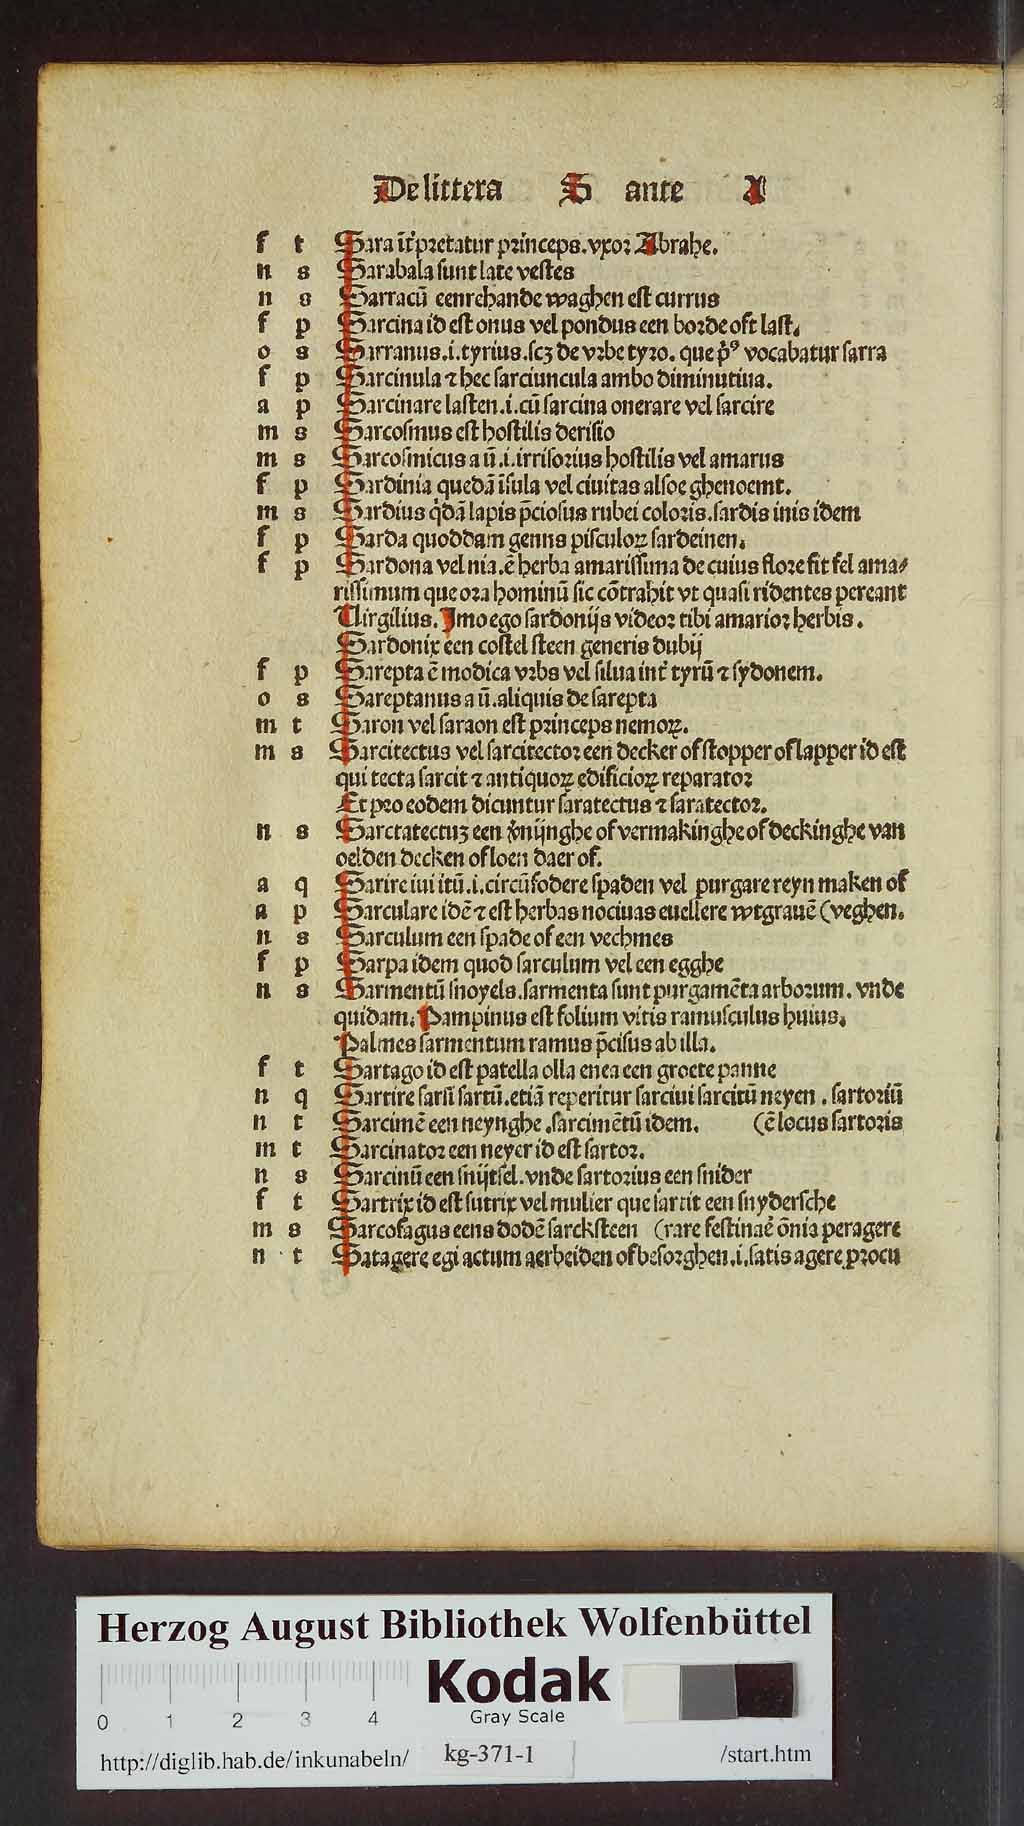 De littera S ante A
f t Sara ît͛pretatur princeps. vxor Abrahe.
n s Sarabala sunt late vestes
n s Sarracū eenrehande waghen est currus
f p Sarcina id est onus vel pondus een borde oft last.
o s Sarranus .i. tyrius. scꝫ de vrbe tyro. que pͥꝰ vocabatur sarra
f p Sarcinula ⁊ hec sarciuncula ambo diminutiua.
a p Sarcinare lasten .i. cū sarcina onerare vel sarcire
m s Sarcosmus est hostilis derisio
m s Sarcosmicus a ū .i. irrisorius hostilis vel amarus
f p Sardinia quedā īsula vel ciuitas alsoe ghenoemt.
m s Sardius qͥdā lapis p̄ciosus rubei coloris. sardis inis idem
f p Sarda quoddam genns pisculoꝝ sardeinen.
f p Sardona vel nia. ē herba amarissima de cuius flore fit fel ama⸗
rissimum que ora hominū sic cōtrahit vt quasi ridentes pereant
Virgilius. Imo ego sardonijs videor tibi amarior herbis.
Sardonix een costel steen generis dubij
f p Sarepta ē modica vrbs vel silua int͛ tyrū ⁊ sydonem.
o s Sareptanus a ū. aliquis de sarepta
m t Saron vel saraon est princeps nemoꝝ.
m s Sarcitectus vel sarcitector een decker of stopper of lapper id est
qui tecta sarcit ⁊ antiquoꝝ edificioꝝ reparator
Et pro eodem dicuntur saratectus ⁊ saratector.
n s Sarctatectuꝫ een v͛nijnghe of vermakinghe of deckinghe van
oelden decken of loen daer of.
a q Sarire iui itū .i. circūfodere spaden vel purgare reyn maken of
a p Sarculare idē ⁊ est herbas nociuas euellere wtgrauē (veghen.
n s Sarculum een spade of een vechmes
f p Sarpa idem quod sarculum vel een egghe
n s Sarmentū snoyels. sarmenta sunt purgamēta arborum. vnde
quidam. Pampinus est folium vitis ramusculus huius.
Palmes sarmentum ramus p̄cisus ab illa.
f t Sartago id est patella olla enea een groete panne
n q Sartire sarsi sartū. etiā reperitur sarciui sarcitū neyen. sartoriū
n t Sarcimē een neynghe. sarcimētū idem. (ē locus sartoris
m t Sarcinator een neyer id est sartor.
n s Sarcinū een snijtsel. vnde sartorius een snider
f t Sartrix id est sutrix vel mulier que sartit een snydersche
m s Sarcofagus eens dodē sarcksteen (rare festinaē oīnia peragere
n t Satagere egi actum aerbeiden of besorghen .i. satis agere procu
Herzog August Bibliothek Wolfenbüttel
Kodak
Gray Scale
0 1 2 3 4
http://diglib.hab.de/inkunabeln/ kg-371-1 /start.htm